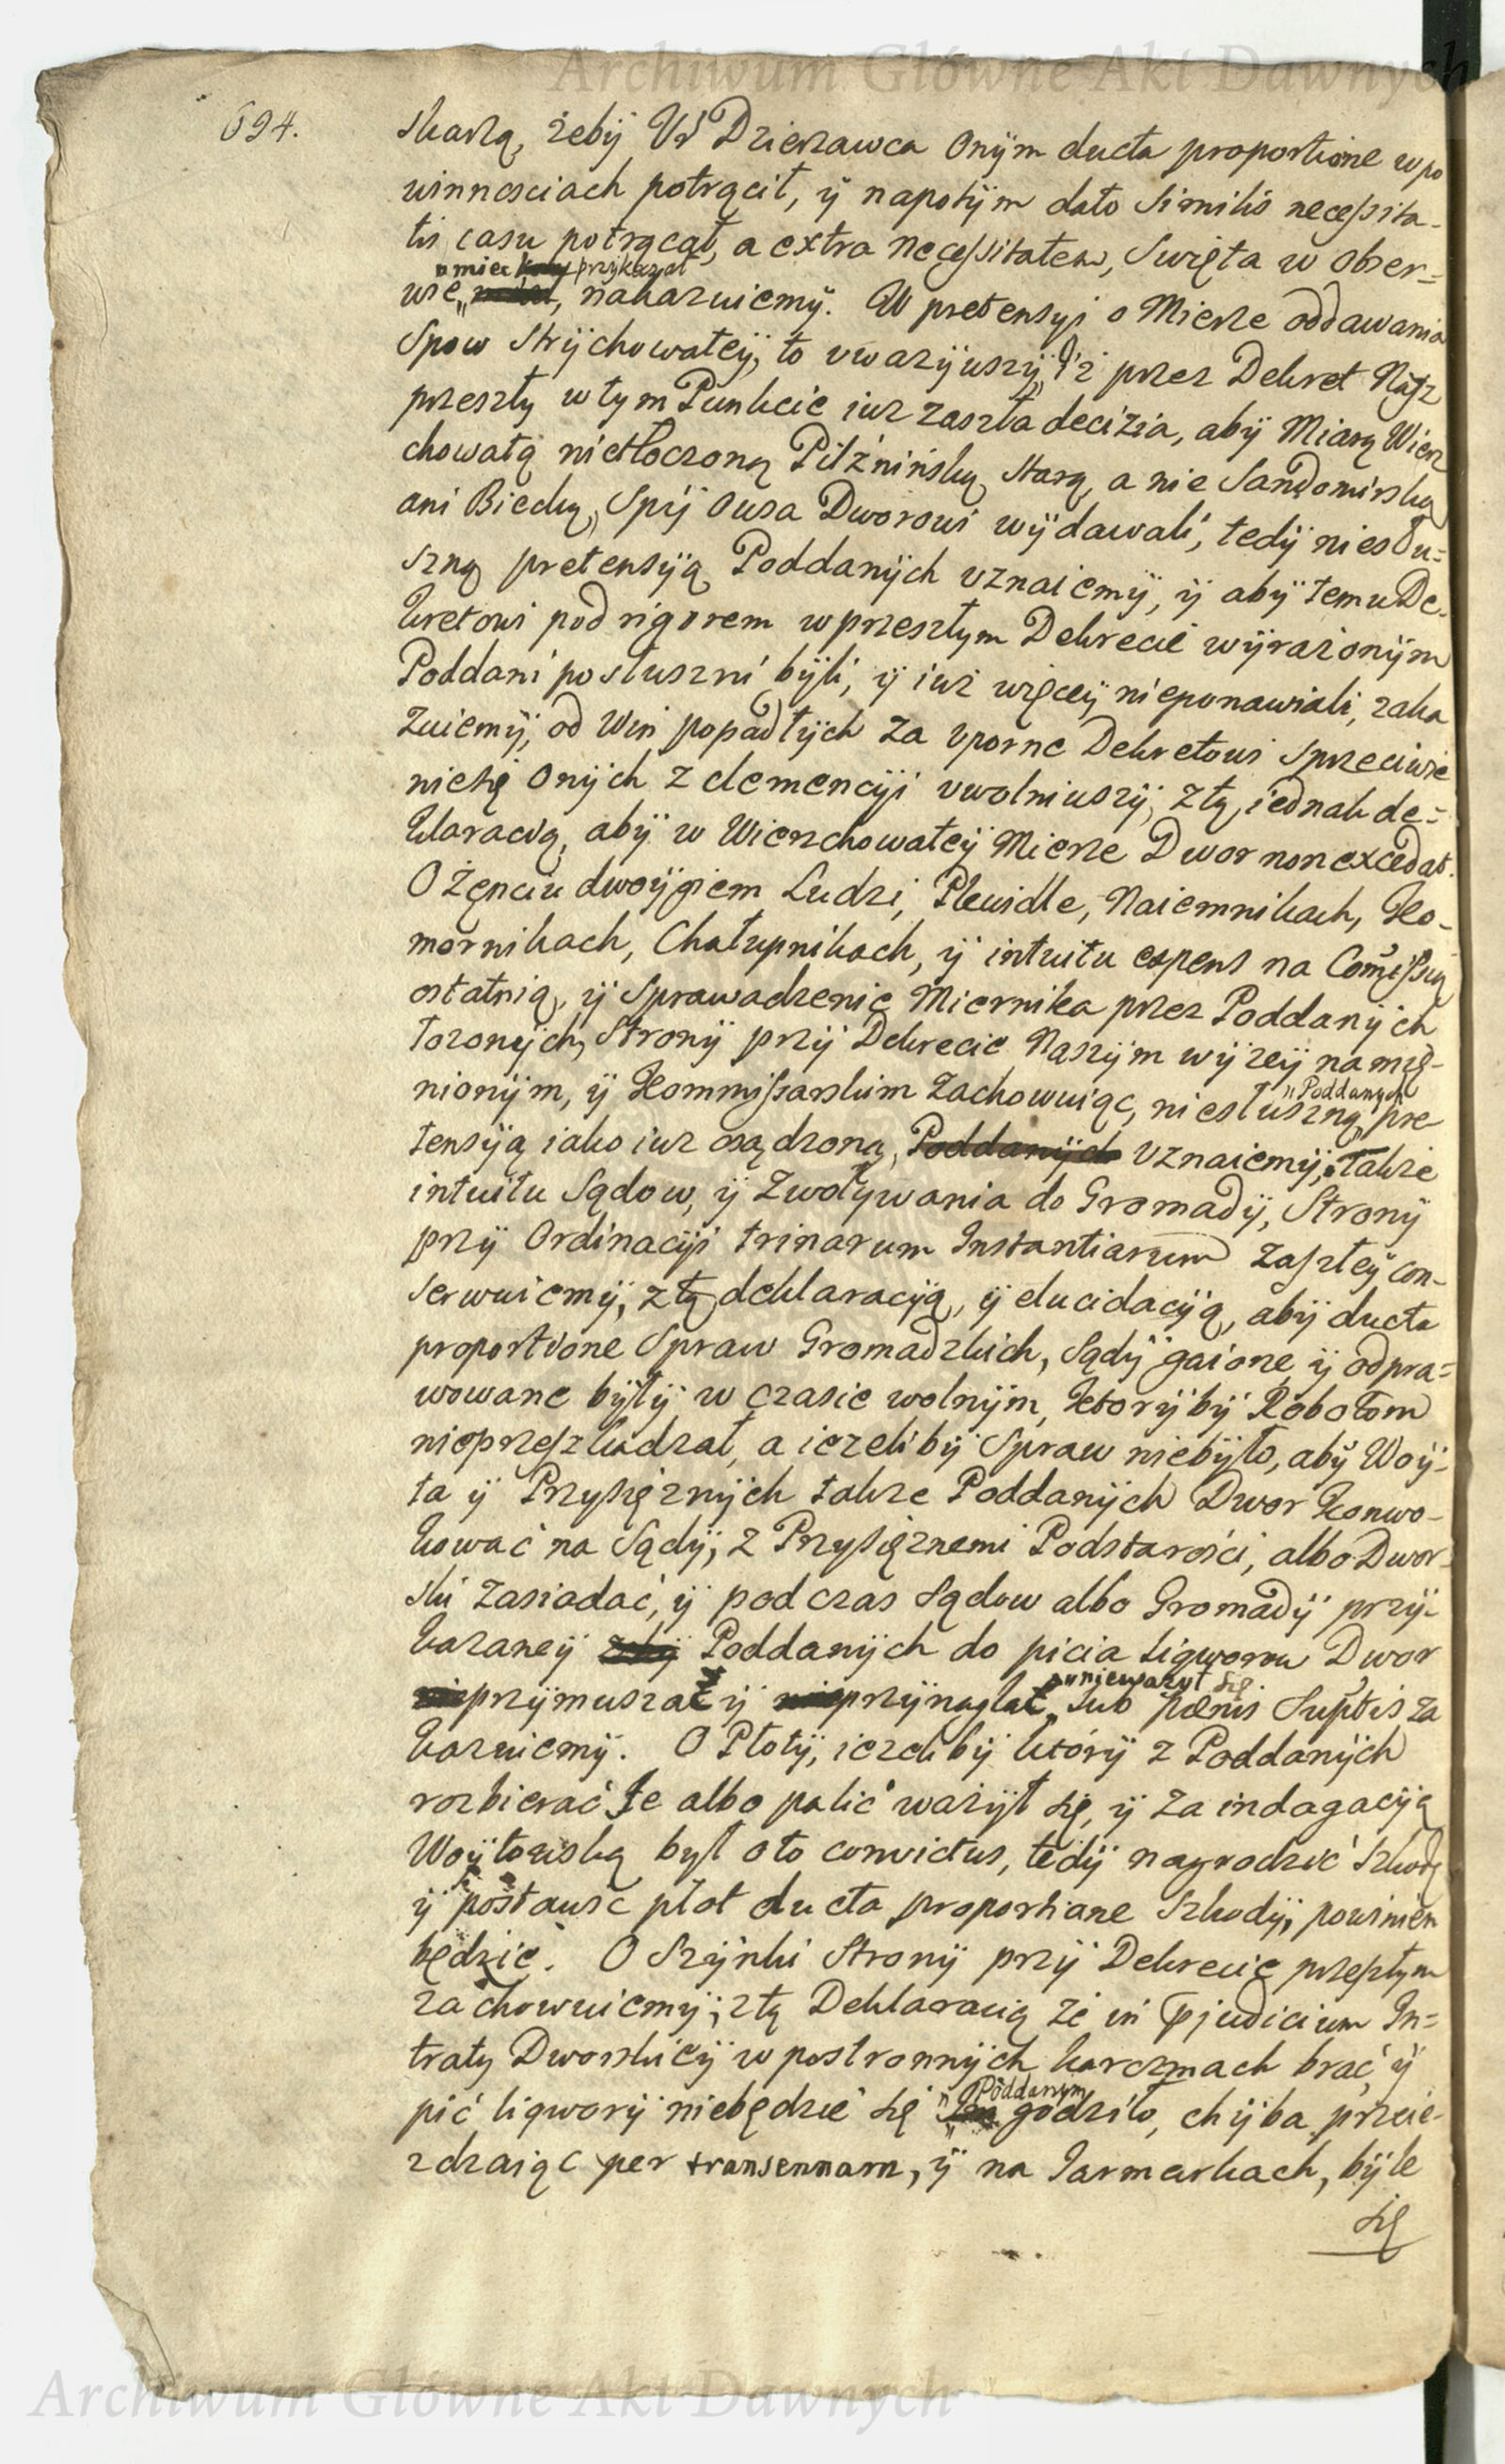 Archiwum Główne Akt Dawnych
694.
skarżą, żebÿ Ur Dzierzawca onÿm ducta proportione w po
winnosciach potrącił, ÿ napotÿm dato similis necessita-
tis casu potrącał, a extra necessitatem, Swięta w obser-
wie „miec przÿkazał, nakazuiemÿ. W pretensyi o Mierze oddawania
Spow Strÿchowateÿ, to uważÿwszÿ, iż przez Dekret Nasz
przeszły w tym Punkcie iuz zaszła decizia, abÿ Miarą Wierz
chowatą nietłoczoną Pilźnińską starą, a nie Sandomirską
ani Biecką, Spÿ Owsa Dworowi wÿdawali, tedÿ niesłu-
szną pretensÿą Poddanÿch uznaiemÿ, ÿ abÿ temu De-
kretowi pod rigorem w przeszłym Dekrecie wÿrażonÿm
Poddani posłuszni bÿli, ÿ iuż więceÿ nieponawiali, zaka
zuiemÿ, od Win popadłÿch za uporne Dekretowi sprzeciwie
nie się onÿch z clemencÿi uwolniwszÿ, z tą iednak de-
klaracią, abÿ w Wierzchowateÿ Mierze Dwor non excedat.
O Żęnciu dwoÿgiem Ludzi, Plewidle, Naiemnikach, Ko-
mornikach, Chałupnikach, ÿ intuitu expens na Comissią
ostatnią, ÿ Sprawadzenie Miernika przez Poddanÿch
łozonÿch, Stronÿ przÿ Dekrecie Naszÿm wÿzeÿ namię-
nionÿm, ÿ Kommissarskim zachowuiąc, niesłuszną „Poddanych pre
tensÿą iako iuz osądzoną, Poddanÿch uznaiemÿ, także
intuitu Sądow, ÿ Zwoływania do Gromadÿ, Stronÿ
przÿ Ordinacÿi trinarum Instantiarum zaszłeÿ con-
serwuiemÿ, z tą deklaracÿą, ÿ elucidacÿą, abÿ ducta
proportione Spraw Gromadzkich, Sądÿ gaione ÿ odpra-
wowane bÿłÿ w czasie wolnÿm, ktorÿbÿ Robotom
nieprzeszkadzał, a iezelibÿ Spraw niebÿło, abÿ Woÿ-
ta ÿ Przysięznÿch takze Poddanÿch Dwor konwo-
kować na Sądÿ, z Przysięznemi Podstarości, albo Dwor
ski zasiadać, ÿ podczas Sądow albo Gromadÿ przÿ-
kazaneÿ Poddanÿch do picia liqworow Dwor
przÿmuszać ÿ przÿnaglać „niewazył się sub pænis supłis za
kazuiemÿ. O Płotÿ, iezelibÿ ktorÿ z Poddanÿch
rozbierać Je albo palić ważÿł się, ÿ za indagacÿą
Woÿtowską był o to convictus, tedÿ nagrodzić szkodę
ÿ postawić płot ducta proportione szkodÿ, powinien
będzie. O Szÿnki Stronÿ przÿ Dekrecie przeszłym
zachowuiemÿ, z tą Deklaracią że in pjudicium In-
traty Dworskieÿ w postronnÿch karczmach brać ÿ
pić liqworÿ niebędzie się „Poddanym godziło, chÿba przeie-
zdzaiąc per transennam, ÿ na Jarmarkach, bÿle
się
Archiwum Główne Akt Dawnych